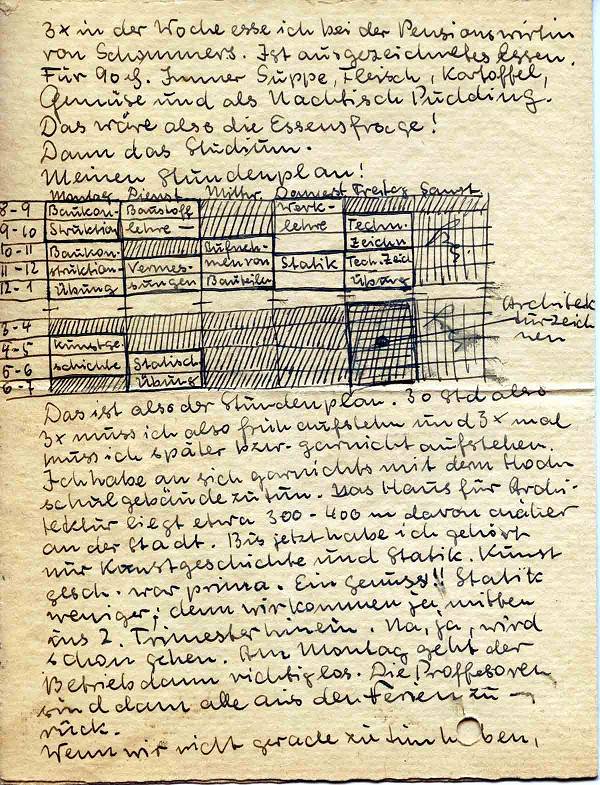 3x in der Woche esse ich bei der Pensionswirtin
von Schommers. Ist ausgezeichnetes Essen.
Für 90 ₰. Immer Suppe, Fleisch, Kartoffel,
Gemüse und als Nachtisch Pudding.
Das wäre also die Essensfrage!
Dann das Studium.
Meinen Stundenplan!
Montag Dienst Mittw. Donnerst Freitag Samst.
8-9 Baukon- Baustoff Werk-
9-10 Struktion lehre – lehre Techn.
10-11 Baukon- Aufneh- Zeichn
11-12 struktion- Vermes- men von Statik Tech. Zeich
12-1 übung sungen Bauteilen übung
3-4
4-5 Kunstge-
5-6 schichte Statisch
6-7 übung
Architek
turzeich
nen
Das ist also der Stundenplan. 30 Std also
3x muss ich also früh aufstehn und 3x mal
muss ich später bzw. garnicht aufstehen.
Ich habe an sich garnichts mit dem Hoch
schulgebäude zu tun. Das Haus für Archi-
tektur liegt etwa 300-400 m davon näher
an der Stadt. Bis jetzt habe ich gehört
nur Kunstgeschichte und Statik. Kunst
gesch. war prima. Ein Genuss!! Statik
weniger; denn wir kommen ja mitten
ins 2. Trimester hinein. Na, ja, wird
schon gehen. Am Montag geht der
Betrieb dann richtig los. Die Proffesoren
sind dann alle aus den Ferien zu –
rück.
Wenn wir nicht gerade zu tun haben,